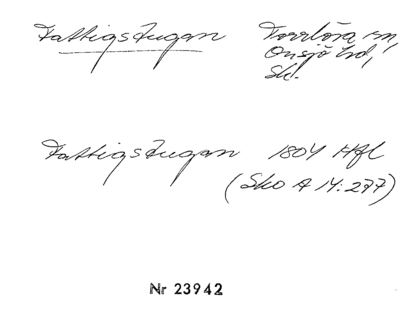 Fattigstugan Torrlösa sn,
Onsjö hd,
Sk.
Fattigstugan 1804 Hfl
(Sko A 14:277)
Nr 23942